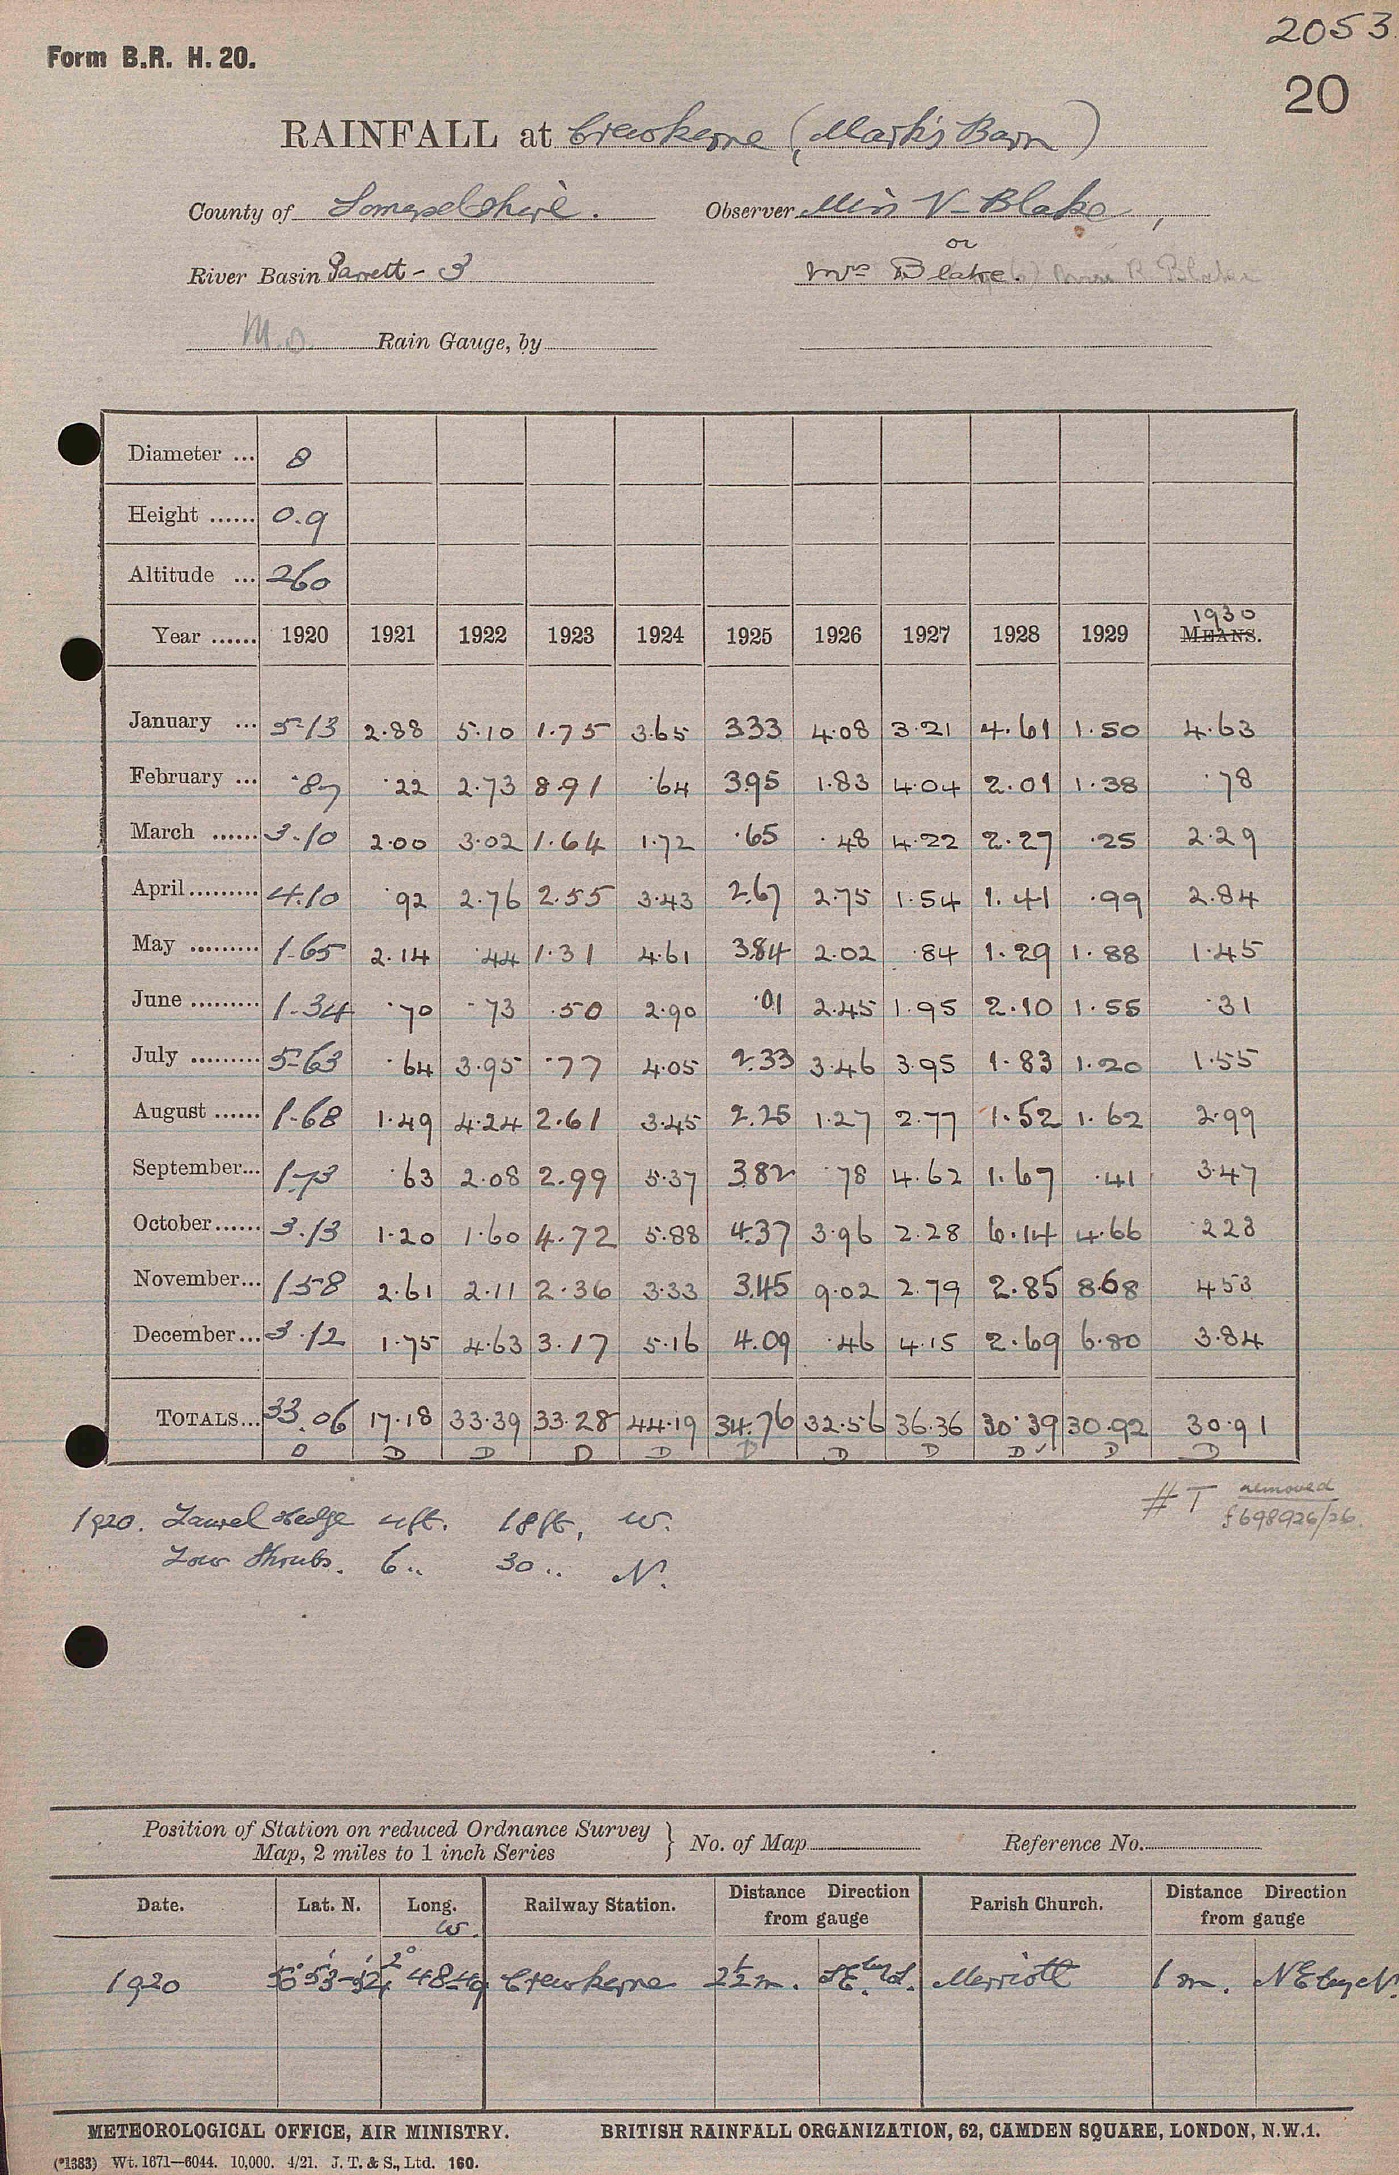 2053
Form B.R. H. 20.
20
RAINFALL at Crewkerne (Mark's Barn)
County of Somersetshire. Observer Miss V. Blake,
or
River Basin Parrett - 3 Mrs Blake.
M.O. Rain Gauge, by
Diameter ... 8
Height ...... 0.9
Altitude ... 260
1930
Year ...... 1920 1921 1922 1923 1924 1925 1926 1927 1928 1929 MEANS.
January ... 5.13 2.88 5.10 1.75 3.65 3.33 4.08 3.21 4.61 1.50 4.63
February ... .87 .22 2.73 8.91 .64 3.95 1.83 4.04 2.01 1.38 .78
March ...... 3.10 2.00 3.02 1.64 1.72 .65 .48 4.22 2.27 .25 2.29
April ......... 4.10 .92 2.76 2.55 3.43 2.67 2.75 1.54 1.41 .99 2.84
May ......... 1.65 2.14 .44 1.31 4.61 3.84 2.02 .84 1.29 1.88 1.45
June ......... 1.34 .70 .73 .50 2.90 .01 2.45 1.95 2.10 1.55 .31
July ......... 5.63 .64 3.95 .77 4.05 2.33 3.46 3.95 1.83 1.20 1.55
August ...... 1.68 1.49 4.24 2.61 3.45 2.25 1.27 2.77 1.52 1.62 2.99
September... 1.73 .63 2.08 2.99 5.37 3.82 .78 4.62 1.67 .41 3.47
October...... 3.13 1.20 1.60 4.72 5.88 4.37 3.96 2.28 6.14 4.66 2.23
November... 1.58 2.61 2.11 2.36 3.33 3.45 9.02 2.79 2.85 8.68 4.53
December... 3.12 1.75 4.63 3.17 5.16 4.09 .46 4.15 2.69 6.80 3.84
TOTALS... 33.06 17.18 33.39 33.28 44.19 34.76 32.56 36.36 30.39 30.92 30.91
D D D D D D D D D D D
# T removed
f698926/26.
1920. Laurel Hedge 4ft. 18ft, W.
Low Shrubs. 6 .. 30 .. N.
Position of Station on reduced Ordnance Survey
Map, 2 miles to 1 inch Series } No. of Map Reference No.
Date. Lat. N. Long. W. Railway Station. Distance Direction from gauge Parish Church. Distance Direction from gauge
1920 50° 53'-52' 2° 48-49 Crewkerne 2½ m. SE by S. Merriott 1 m. NE by N.
METEOROLOGICAL OFFICE, AIR MINISTRY. BRITISH RAINFALL ORGANIZATION, 62, CAMDEN SQUARE, LONDON, N.W.1.
(*1383) Wt. 1671—6044. 10,000. 4/21. J. T. & S., Ltd. 160.